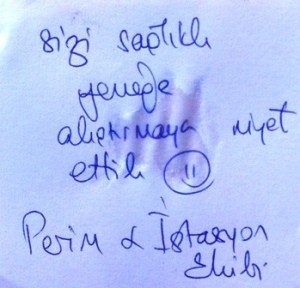 sizi sağlıklı
yemeğe
alıştırmaya niyet
ettik
Perim & İstasyon
Ekibi